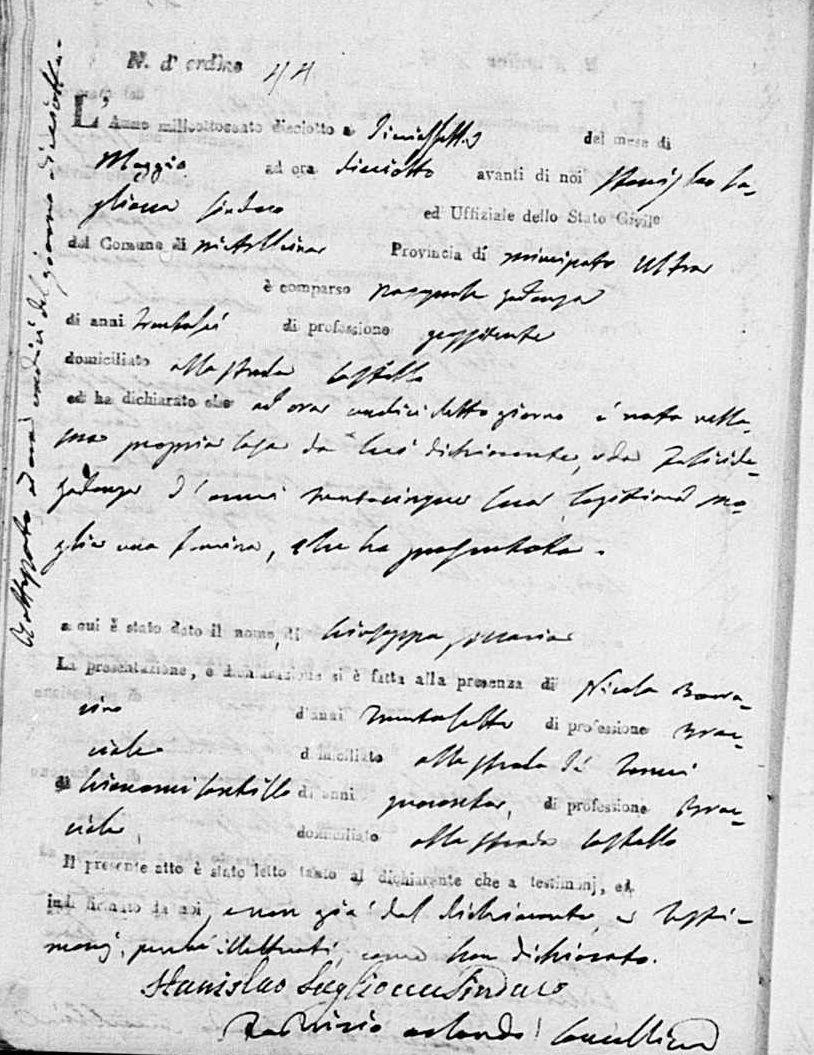 N. d' ordine 44
L' Anno milleottocento dieciotto a diciassette del mese di
Maggio ad ora dieciotto avanti di noi Stanislao Sa-
gliocca Sindaco ed Uffiziale dello Stato Civile
del Comune di Provincia di Principato Ultra
è comparso Pasquale
di anni trentasei di professione
domiciliato alla strada Castello
ed ha dichiarato che ad ora undici detto giorno è nata nella
sua propria casa da lui dichiarante, e da
d'anni trentacinque sua legittima mo-
glie una femina, che ha presentata.
a cui è stato dato il nome di Giuseppa
La presentazione, e dichiarazione si è fatta alla presenza di Nicola
d'anni trentasette di professione Brac-
ciale domiciliato alla strada
di Giovanni di anni quaranta, di professione Brac-
ciale, domiciliato alla strada Castello
Il presente atto è stato letto tanto al dichiarante che a testimonj, ed
indi firmato da noi, e non già dal dichiarante, e testi-
monj, perché illetterati, come han dichiarato.
Stanislao Sagliocca Sindaco
ad ora undici del giorno dieciotto